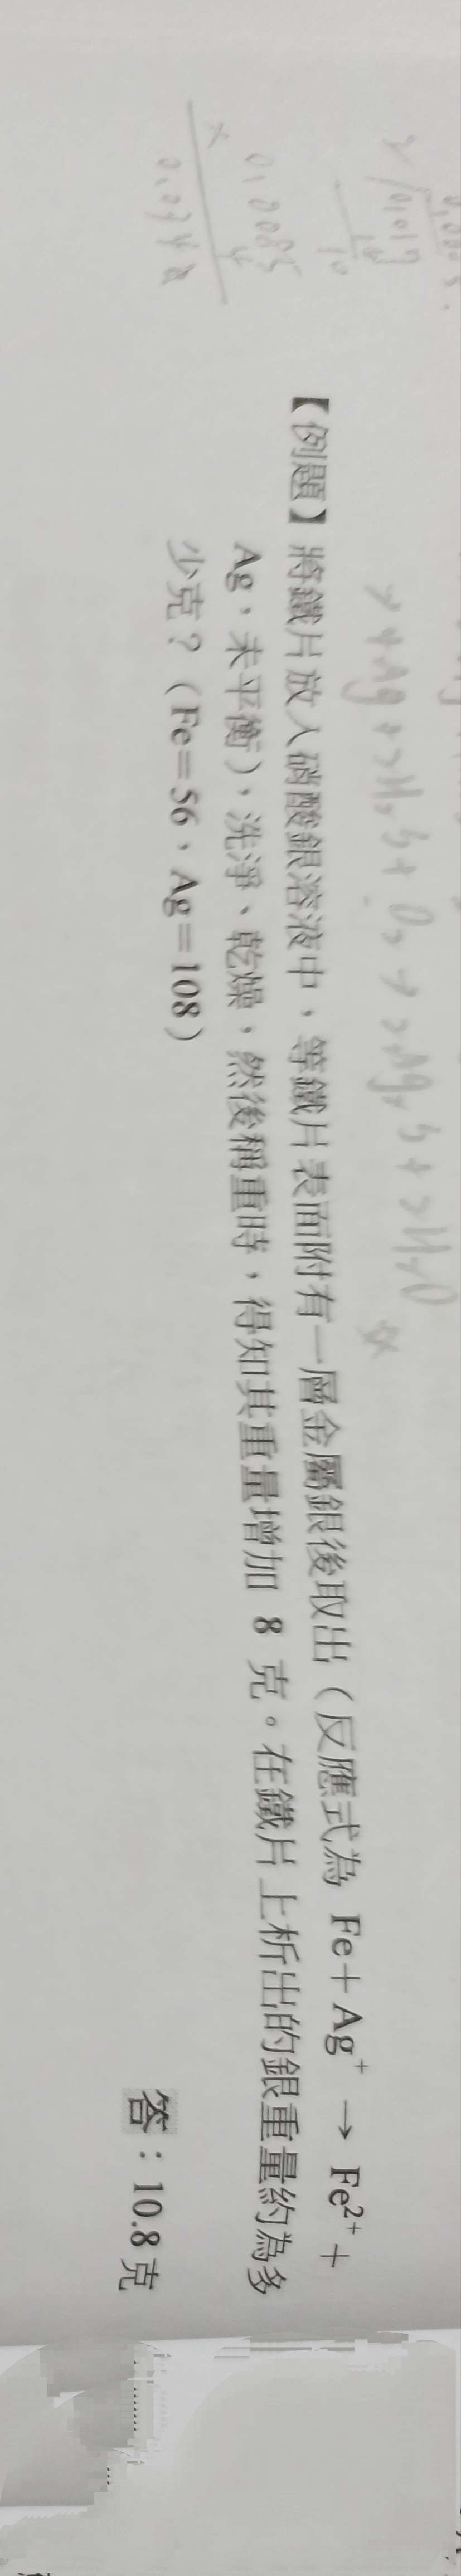 【例題】將鐵片放入硝酸銀溶液中，等鐵片表面附有一層金屬銀後取出（反應式為 Fe＋Ag⁺ → Fe²⁺＋
Ag，未平衡），洗淨、乾燥，然後稱重時，得知其重量增加 8 克。在鐵片上析出的銀重量約為多
少克？（Fe＝56，Ag＝108）
答：10.8 克